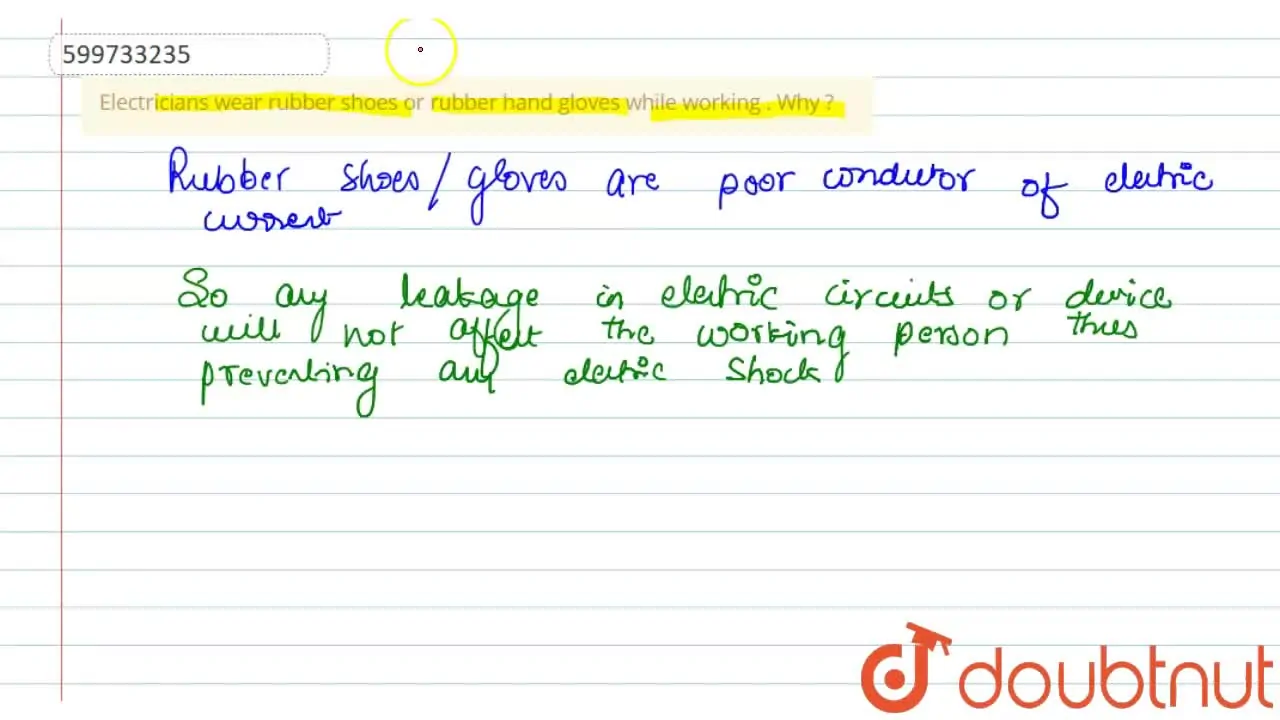 599733235
Electricians wear rubber shoes or rubber hand gloves while working . Why ?
Rubber shoes/gloves are poor conductor of electric
current
So any leakage in electric circuits or device
will not affect the working person thus
preventing any electric shock
doubtnut